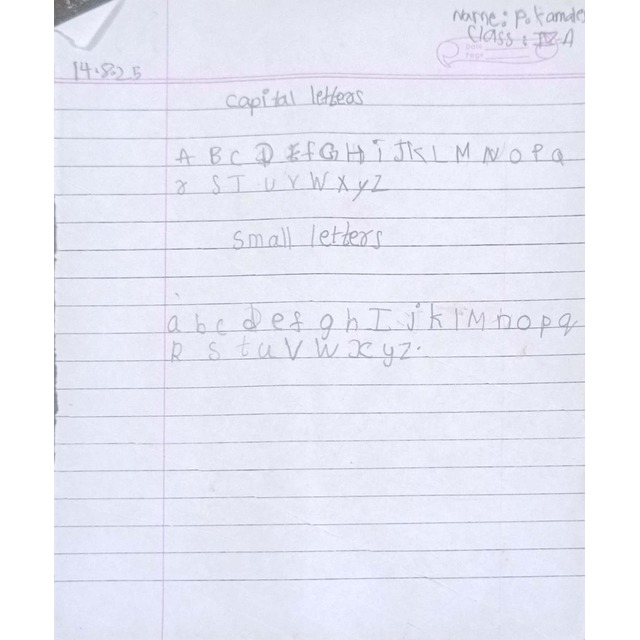 Name: P. Kamale
Class: IX A
Date
Page
14.8.25
Capital letters
A B C D E f G H i J K L M N O P Q
r S T U V W X y Z
Small letters
a b c d e f g h I j k l M n o p q
R S t u V W x y z.